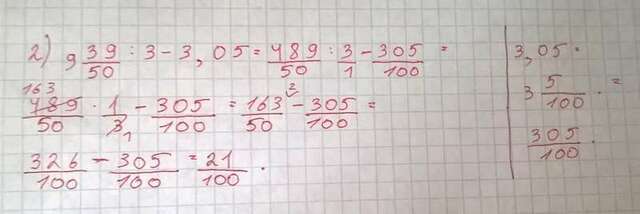 2) 9 39/50 : 3 - 3,05 = 489/50 : 3/1 - 305/100 =
163
489/50 · 1/3 1 - 305/100 = 163/50 2 - 305/100 =
326/100 - 305/100 = 21/100 .
3,05 .
3 5/100 . =
305/100 .